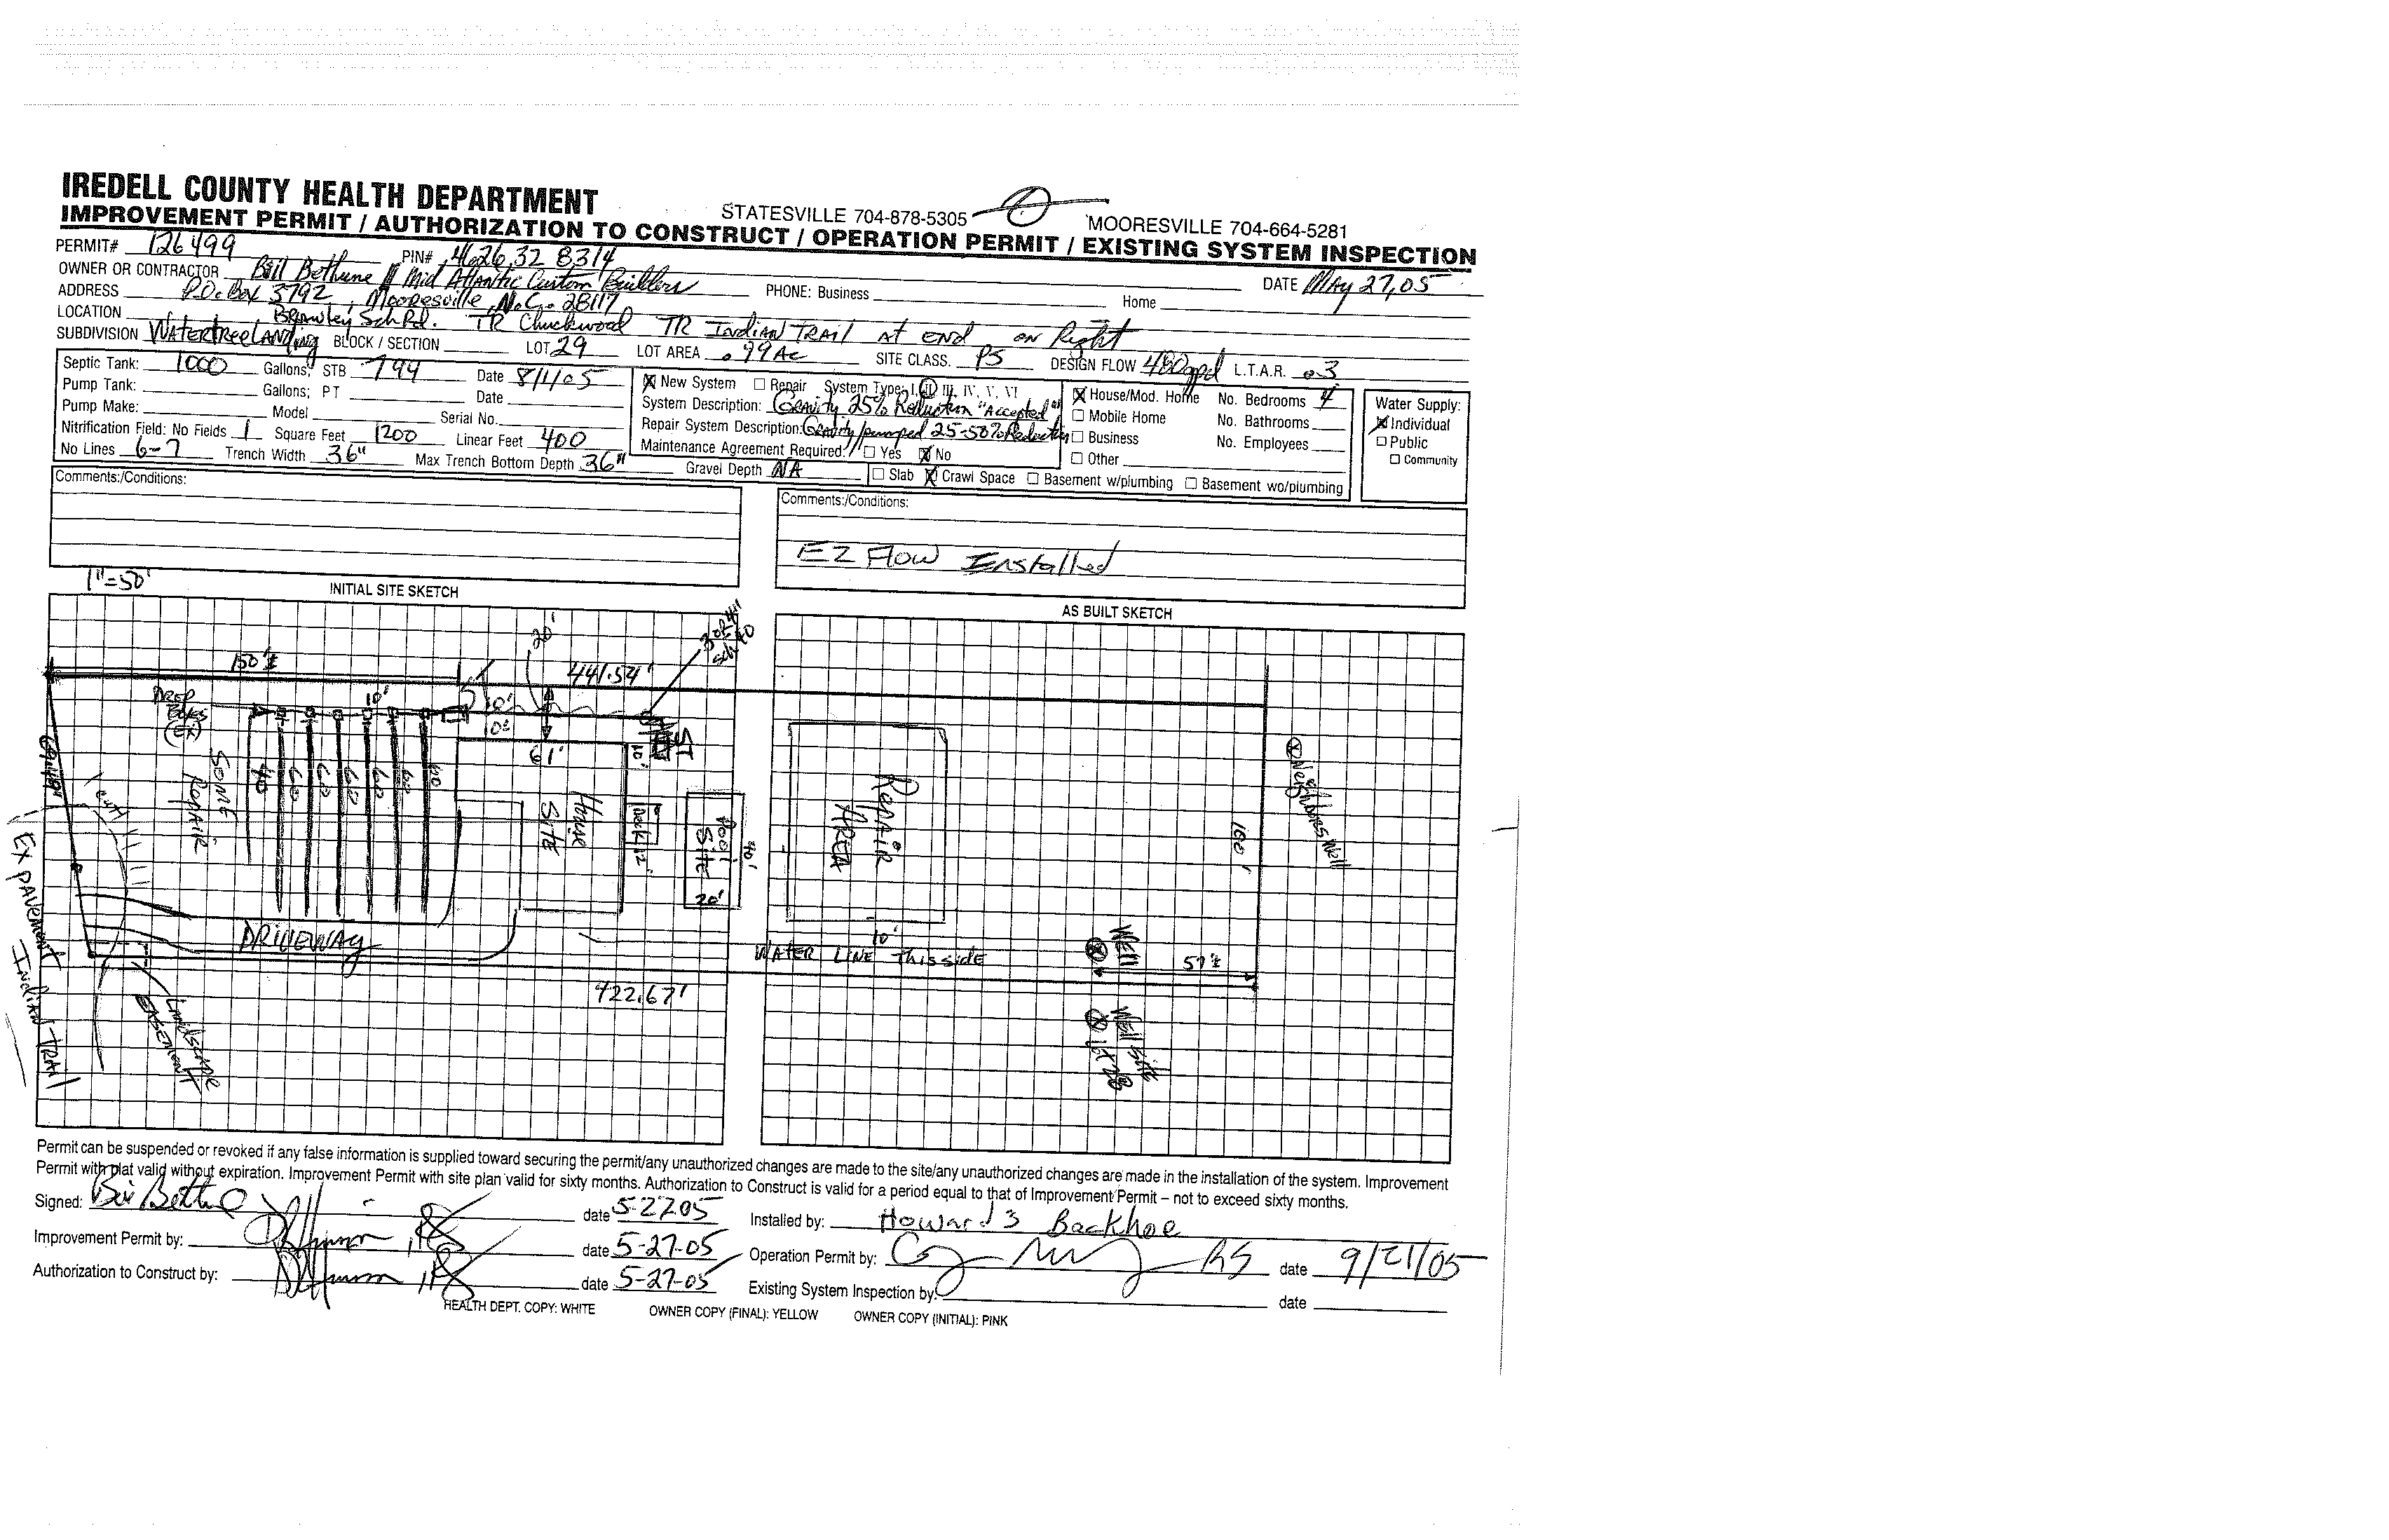 IREDELL COUNTY HEALTH DEPARTMENT
STATESVILLE 704-878-5305 MOORESVILLE 704-664-5281
IMPROVEMENT PERMIT / AUTHORIZATION TO CONSTRUCT / OPERATION PERMIT / EXISTING SYSTEM INSPECTION
PERMIT# 126499 PIN# 4626.32 8314
OWNER OR CONTRACTOR Bill Bethune Mid Atlantic Custom Builders PHONE: Business Home DATE May 27, 05
ADDRESS P.O. Box 3792, Mooresville, N.C. 28117
LOCATION Brawley Sch Rd. TR Chuckwood TR Indian Trail at end on Right
SUBDIVISION Watertree Landing BLOCK / SECTION LOT 29 LOT AREA .99 Ac SITE CLASS. PS DESIGN FLOW 480gpd L.T.A.R. .3
Septic Tank: 1000 Gallons; STB 794 Date 8/1/05
Pump Tank: Gallons; PT Date
Pump Make: Model Serial No.
Nitrification Field: No Fields 1 Square Feet 1200 Linear Feet 400
No Lines 6-7 Trench Width 36" Max Trench Bottom Depth 36" Gravel Depth NA
New System Repair System Type: I, II, III, IV, V, VI
System Description: Gravity 25% Reduction "Accepted"
Repair System Description: Gravity/pumped 25-50% Reduction
Maintenance Agreement Required: Yes No
Slab Crawl Space Basement w/plumbing Basement wo/plumbing
House/Mod. Home No. Bedrooms 4
Mobile Home No. Bathrooms
Business No. Employees
Other
Water Supply:
Individual
Public
Community
Comments:/Conditions:
Comments:/Conditions:
EZ Flow Installed
1"=50'
INITIAL SITE SKETCH
AS BUILT SKETCH
20'
3 or 4"
Sch 40
150'±
441.54'
DROP
Boxes
(EX)
10'
10'
ST
61'
10'
Some
Repair
40
60
60
60
60
60
60
House
Site
Deck
12'
Pool
Site
40'
20'
Repair
AREA
100'
Neighbors Well
DRIVEWAY
10'
WATER LINE This side
Well
57'±
422.67'
EX PAVEMENT
Indian TRAIL
Landscape
EASEMENT
Well Site
Permit can be suspended or revoked if any false information is supplied toward securing the permit/any unauthorized changes are made to the site/any unauthorized changes are made in the installation of the system. Improvement
Permit with plat valid without expiration. Improvement Permit with site plan valid for sixty months. Authorization to Construct is valid for a period equal to that of Improvement Permit – not to exceed sixty months.
Signed: date 5-27-05 Installed by: Howard's Backhoe
Improvement Permit by: , RS date 5-27-05 Operation Permit by: RS date 9/21/05
Authorization to Construct by: , RS date 5-27-05 Existing System Inspection by: date
HEALTH DEPT. COPY: WHITE OWNER COPY (FINAL): YELLOW OWNER COPY (INITIAL): PINK